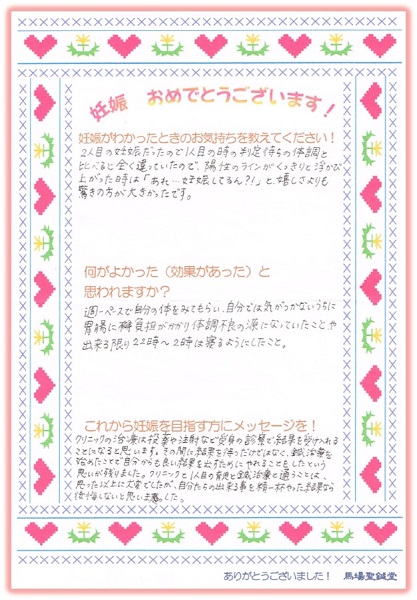 妊娠 おめでとうございます!
妊娠がわかったときのお気持ちを教えてください!
2人目の妊娠だったので1人目の時の判定待ちの体調と
比べると全く違っていたので、陽性のラインがくっきりと浮かび
上がった時は「あれ…妊娠してるん?!」と嬉しさよりも
驚きの方が大きかったです。
何がよかった(効果があった)と
思われますか?
週一ペースで自分の体をみてもらい、自分では気がつかないうちに
胃腸に負担がかかり体調不良の源になっていたことや
出来る限り22時〜2時は寝るようにしたこと。
これから妊娠を目指す方にメッセージを!
クリニックの治療は投薬や注射など受身の診察で結果を受け入れる
ことになると思います。その間に結果を待つだけではなく、鍼治療を
始めたことで自分からも良い結果を出すためにやれることもしたという
思いが残りました。クリニックと1人目の育児と鍼治療と通うことは、
思った以上に大変でしたが、自分たちの出来る事を精一杯やった結果なら
後悔しないと思いました。
ありがとうございました! 馬場聖鍼堂